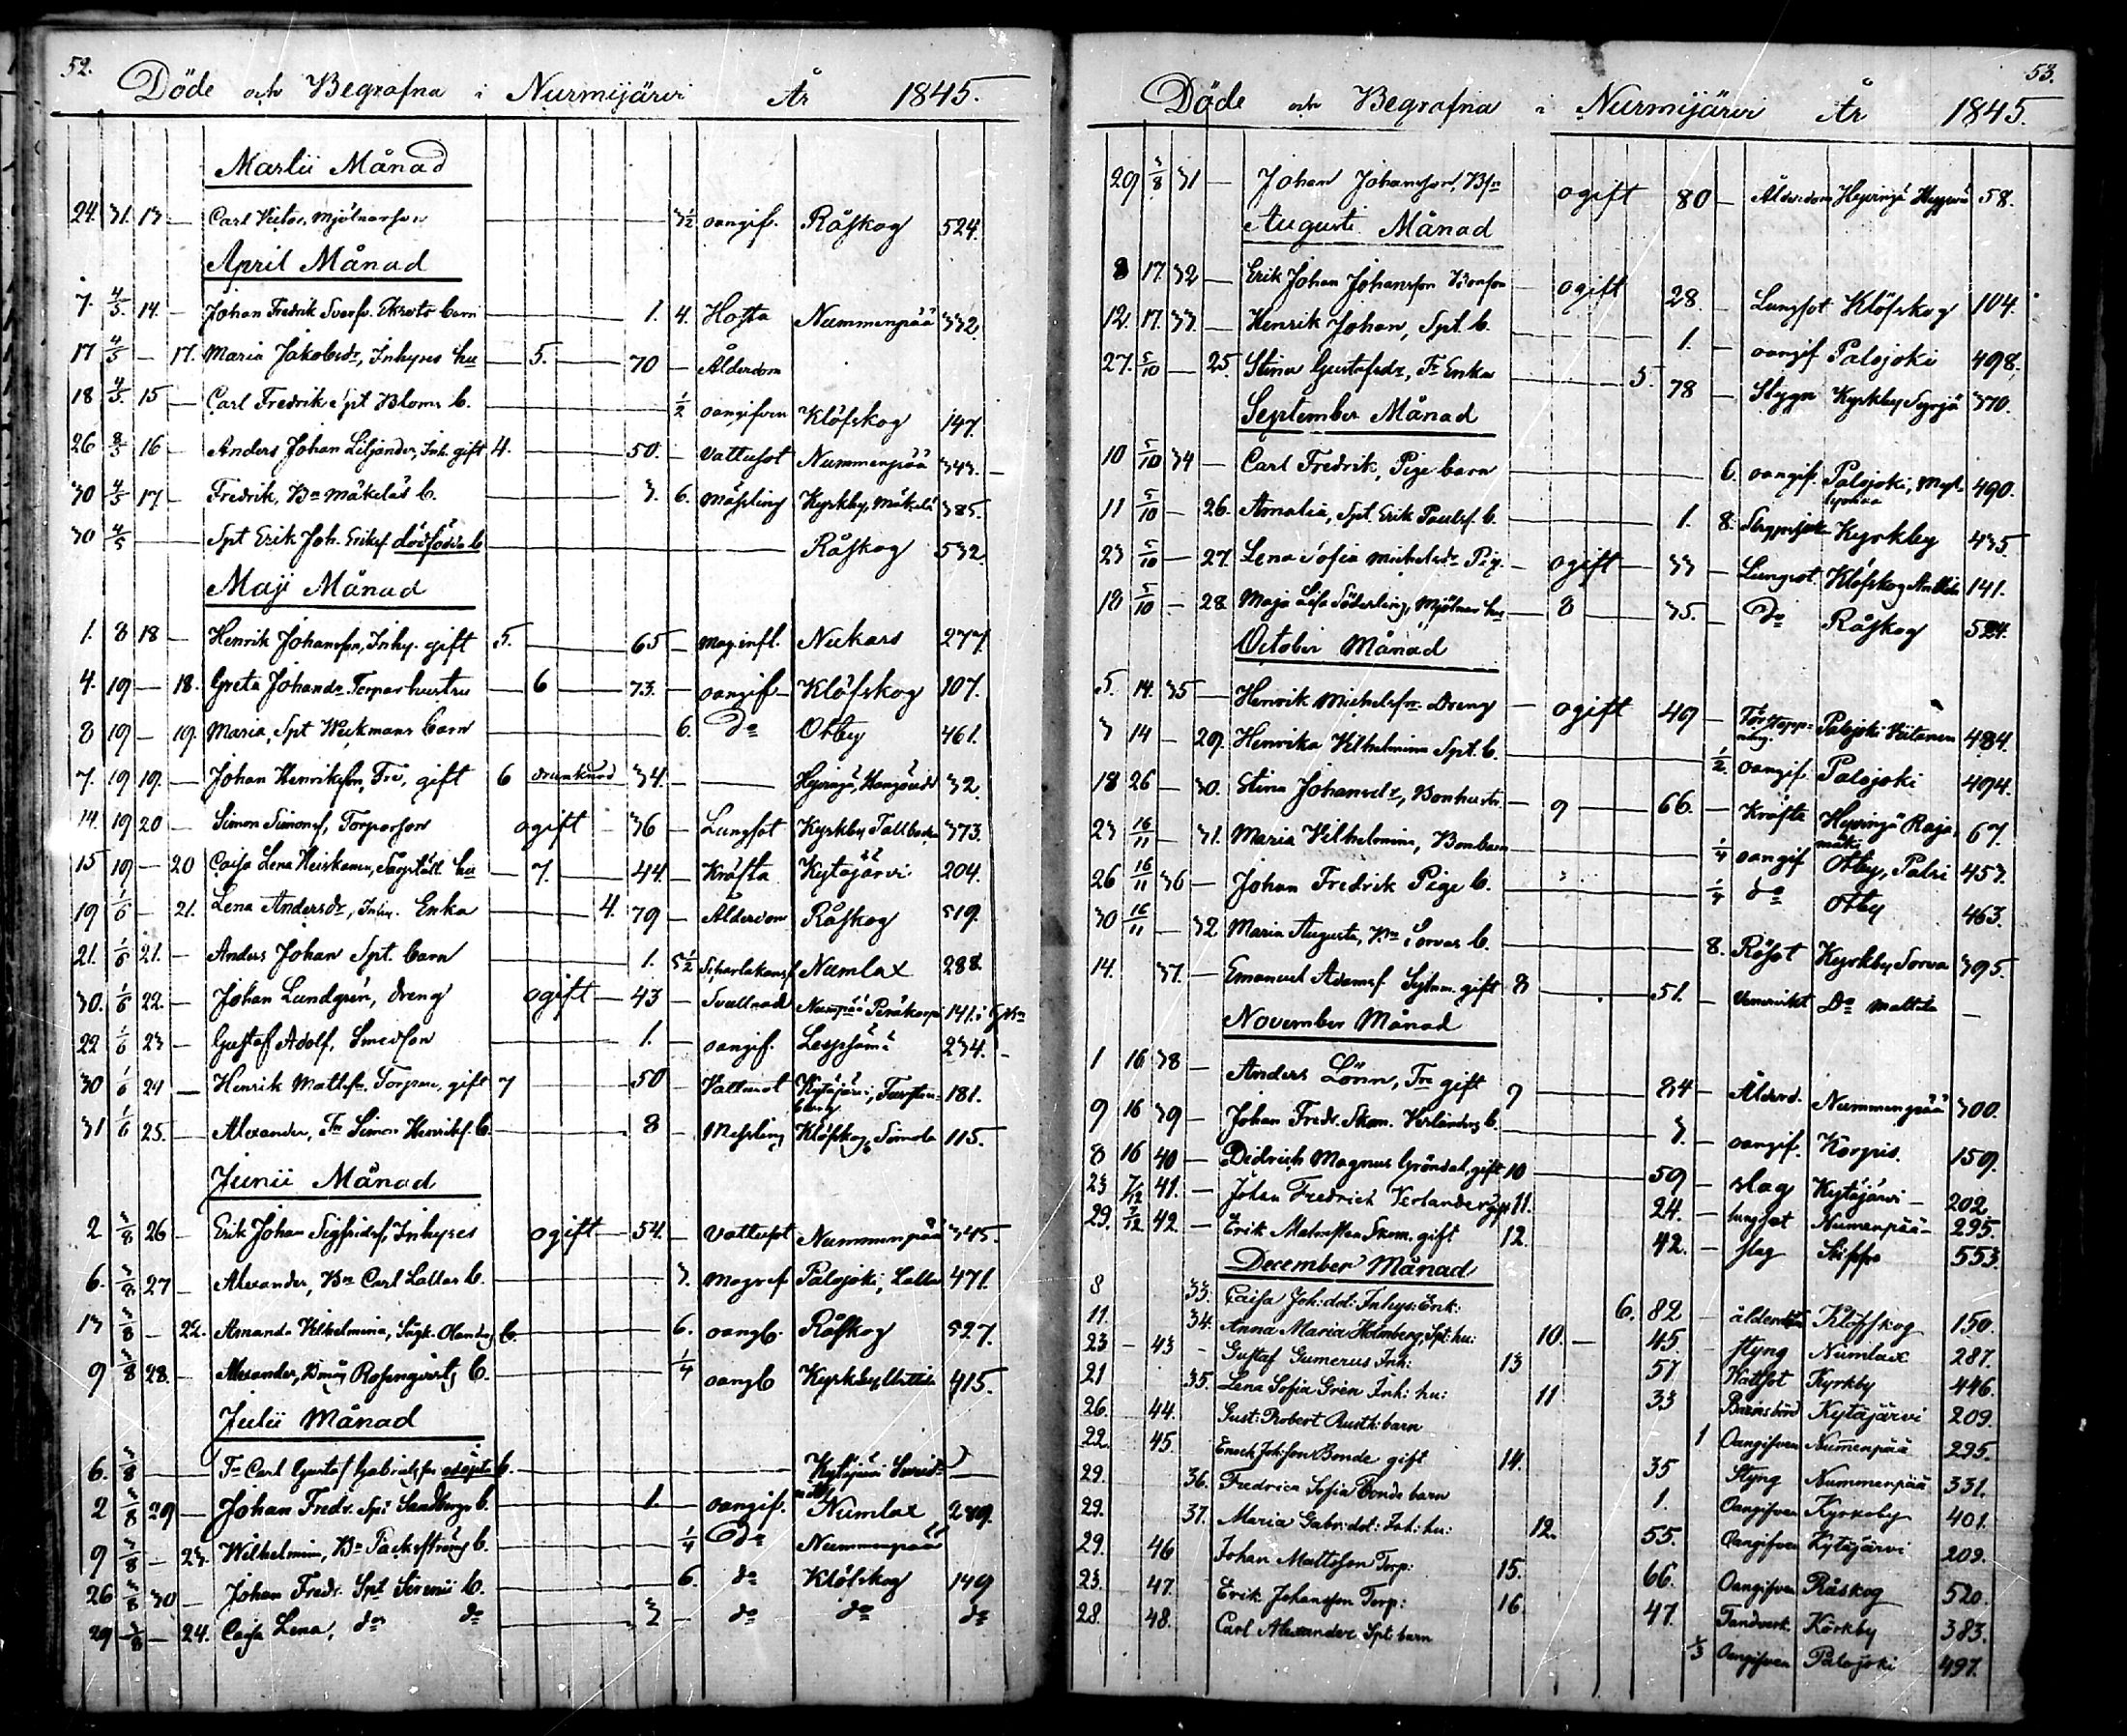 52.
Döde och Begrafna i Nurmijärvi År 1845.
Martii Månad
24. 31. 13 — Carl Victor, Mjölnarson 3½ oangif. Råskog 524.
April Månad
7. 4/5 14. — Johan Fredrik barn 1. 4. Hosta Nummenpää 332.
17 4/5 — 17. Maria Jakobsdr, Inhyses hu 5. 70 — Ålderdom
18 4/5 15 — Carl Fredrik Spt Bloms b. ½ oangifven Klöfskog 147.
26 8/5 16 — Anders Johan Liljander, Inh. gift 4. 50. — Vattusot Nummenpää 343. —
30 4/5 17. — Fredrik, Bn Mäkeläs b. 3 6. mässling Kyrkby, Mäkelä 385.
30 4/5 — Spt Erik Joh. Eriks dödfödda b Råskog 532.
Maji Månad
1. 8 18 — Henrik Johansson, Inhy. gift 5. 65 — mag. infl. Nukars 277.
4. 19 — 18. Greta Johansdr Torparhustru 6 73. — oangif. Klöfskog 107.
8 19 — 19. Maria, Spt Weckmans barn 6. Do Otby 461.
7. 19 19. — Johan Henriksson, Tre, gift 6 drunknad 34. — Hyvingä, 32.
14. 19 20 — Simon Simons, Torparson ogift 36 — Lungsot Kyrkby Tallbacka 373.
15 19 — 20 Caisa Lena Heiskanen, hu 7. 44. — Kräfta Kytäjärvi 204.
19 1/6 — 21. Lena Andersdr, Inhy. Enka 4. 79 — Ålderdom Råskog 519.
21. 1/6 21. — Anders Johan Spt. barn 1. 5½ Scharlakansf. Numlax 288.
30. 1/6 22. — Johan Lundgrén, dreng ogift — 43 — Svullnad Numpää Peräkorpi 141.
22 1/6 23 — Gustaf Adolf, Smedson 1. — oangif. Lepsämä 234. —
30 1/6 24 — Henrik Mattss, Torpare, gift 7 50 — Vattusot Kytäjärvi, 181.
31 1/6 25. — Alexander, Tr Simon Henriks. b. 8 — Messling Klöfskog, Simola 115.
Junii Månad
2 3/8 26 — Erik Johan Sigfridss, Inhyses ogift — 54. — Vattusot Nummenpää 345.
6. 3/8 27 — Alexander, Bn Carl Lallas b. 3. magref Palojoki, Lalla 471.
13 3/8 — 22. Amanda Vilhelmina, Olanders b. 6. oangb. Råskog 527.
9 3/8 28. — Alexander, Rosenqvists b. ¼ oangb Kyrkby, 415.
Julii Månad
6. 3/8 — Tr Carl Gustaf Gabrielssons odöpta b. Kytäjärvi —
2 3/8 29 — Johan Fredr. Spt Sandbergs b. 1. oangif. Numlax 289.
9 3/8 — 23. Wilhelmina, Bn Packströms b. ¼ Do Nummenpää
26 3/8 30 — Johan Fredr. Spt Sirenii b. 6. do Klöfskog 149
29 3/8 — 24. Caisa Lena, do do 3 — do do do
53.
Döde och Begrafna i Nurmijärvi År 1845.
29 3/8 31 — Johan Johansson, Bsn ogift 80 — Ålderdom Hyvingä 58.
Augusti Månad
8 17. 32 — Erik Johan Johansson Bonson — ogift 28. Lungsot Klöfskog 104.
12. 17. 33. — Henrik Johan, Spt. b. 1. — oangif Palojoki 498.
27. 5/10 — 25. Stina Gustafsdr, Tr Enka 5. 78 — Stygn Kyrkby 370.
September Månad
10 5/10 34 — Carl Fredrik, Pige barn 6. oangif. Palojoki, 490.
11 5/10 — 26. Amalia, Spt. Erik Paulss. b. 1. 8. Kyrkby 435.
23 5/10 — 27. Lena Sofia Michelsdr Pig. — ogift — 33 — Lungsot Klöfskog Anttila 141.
18 5/10 — 28 Maja Lisa Söderling, Mjölnar hu — 8 35. — Do Råskog 524.
October Månad
5. 14. 35 — Henrik Michelss. Dreng — ogift 49 — Palojoki 484.
3 14 — 29. Henrika Vilhelmina Spt. b. ½. oangif. Palojoki 494.
18 26 — 30. Stina Johansdr, Bonhustr. — 9 66. — Kräfta Hyvingä Rajamäki 67.
23 16/11 — 31. Maria Vilhelmina, Bonbarn ¼ oangif Otby, Palsi 453.
26 16/11 36 — Johan Fredrik Pige b. ¼ do Otby 463.
30 16/11 — 32 Maria Augusta, Bn Sorvas b. 8. Rösot Kyrkby Sorva 395.
14. 37. — Emanuel Adams. gift 8 51. — Do Mattila —
November Månad
1 16 38 — Anders Lönn, Tre gift 9 84 — Ålderd. Nummenpää 300.
9 16 39 — Johan Fredr. Skom. Verlanders b. 3. — oangif. Korpis. 159.
8 16 40 — Didrich Magnus Gröndal, gift 10 59 — slag Kytäjärvi — 202.
23 7/12 41. — Johan Fredrich Verlander gift 11. 24. — lungsot Numenpää — 295.
29. 7/12 42. — Erik Malmsten Skom. gift 12. 42. — slag 553.
December Månad
8 33. Caisa Joh:dot: Inhys: Enk: 6. 82 — ålderdom Klöfskog 150.
11. 34. Anna Maria Holmberg, Spt: hu: 10. — 45. — styng Numlax 287.
23 — 43 — Gustaf Gumerus Inh: 13 57 Wattsot Kyrkby 446.
21 35. Lena Sofia Grén Inh: hu: 11 33 Barnsbörd Kytäjärvi 209.
26. 44. Gust: Robert Rusth: barn 1 Oangifven Numenpää 295.
22. 45 Enoch Joh:son Bonde gift 14. 35 Styng Nummenpää 331.
29. 36. Fredrica Sofia Bonde barn 1. Oangifven Kyrkoby 401.
29. 37. Maria Gabr:dot: Inh: hu: 12. 55. Oangifven Kytäjärvi 209.
29. 46 Johan Mattsson Torp: 15. 66. Oangifven Råskog 520.
23. 47. Erik Johansson Torp: 16. 47. Tandverk Körkby 383.
28. 48. Carl Alexander Spt barn ⅓ Oangifven Palojoki 497.